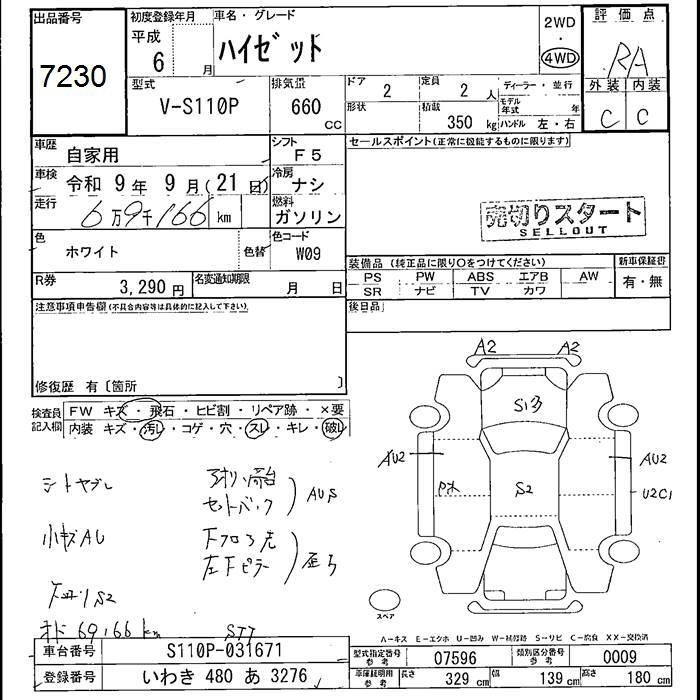 出品番号
7230
初度登録年月
平成
6 月
車名・グレード
ハイゼット
2WD
・
4WD
評価点
RA
型式
V-S110P
排気量
660 cc
ドア
2
定員
2 人
ディーラー・並行
形状
積載
350 kg
モデル年式 年
ハンドル 左・右
外装 内装
C C
車歴
自家用
シフト
F5
セールスポイント(正常に機能するものに限ります)
車検
令和 9年 9月(21日)
冷房
ナシ
走行
6万9千166 km
燃料
ガソリン
売切りスタート
SELLOUT
色
ホワイト
色替
色コード
W09
装備品 (純正品に限り○をつけてください)
新車保証書
PS PW ABS エアB AW
SR ナビ TV カワ
有・無
R券
3,290円
名変通知期限
月 日
後日品
注意事項申告欄(不具合内容等は具体的に記入して下さい)
修復歴 有〔箇所 〕
検査員記入欄
FW キズ・飛石・ヒビ割・リペア跡・×要
内装 キズ・汚レ・コゲ・穴・スレ・キレ・破レ
A2 A2
S1
AU2
AU2
S2
U2C1
シートヤブレ
セットバック
AUS
小キズAU
左下ピラー
S2
オド 69,166 km
スペア
A-キズ E-エクボ U-凹み W-補修跡 S-サビ C-腐食 XX-交換済
車台番号
S110P-031671
登録番号
いわき 480 あ 3276
型式指定番号
参考
07596
類別区分番号
参考
0009
車庫証明用
参考
長さ
329 cm
幅
139 cm
高さ
180 cm